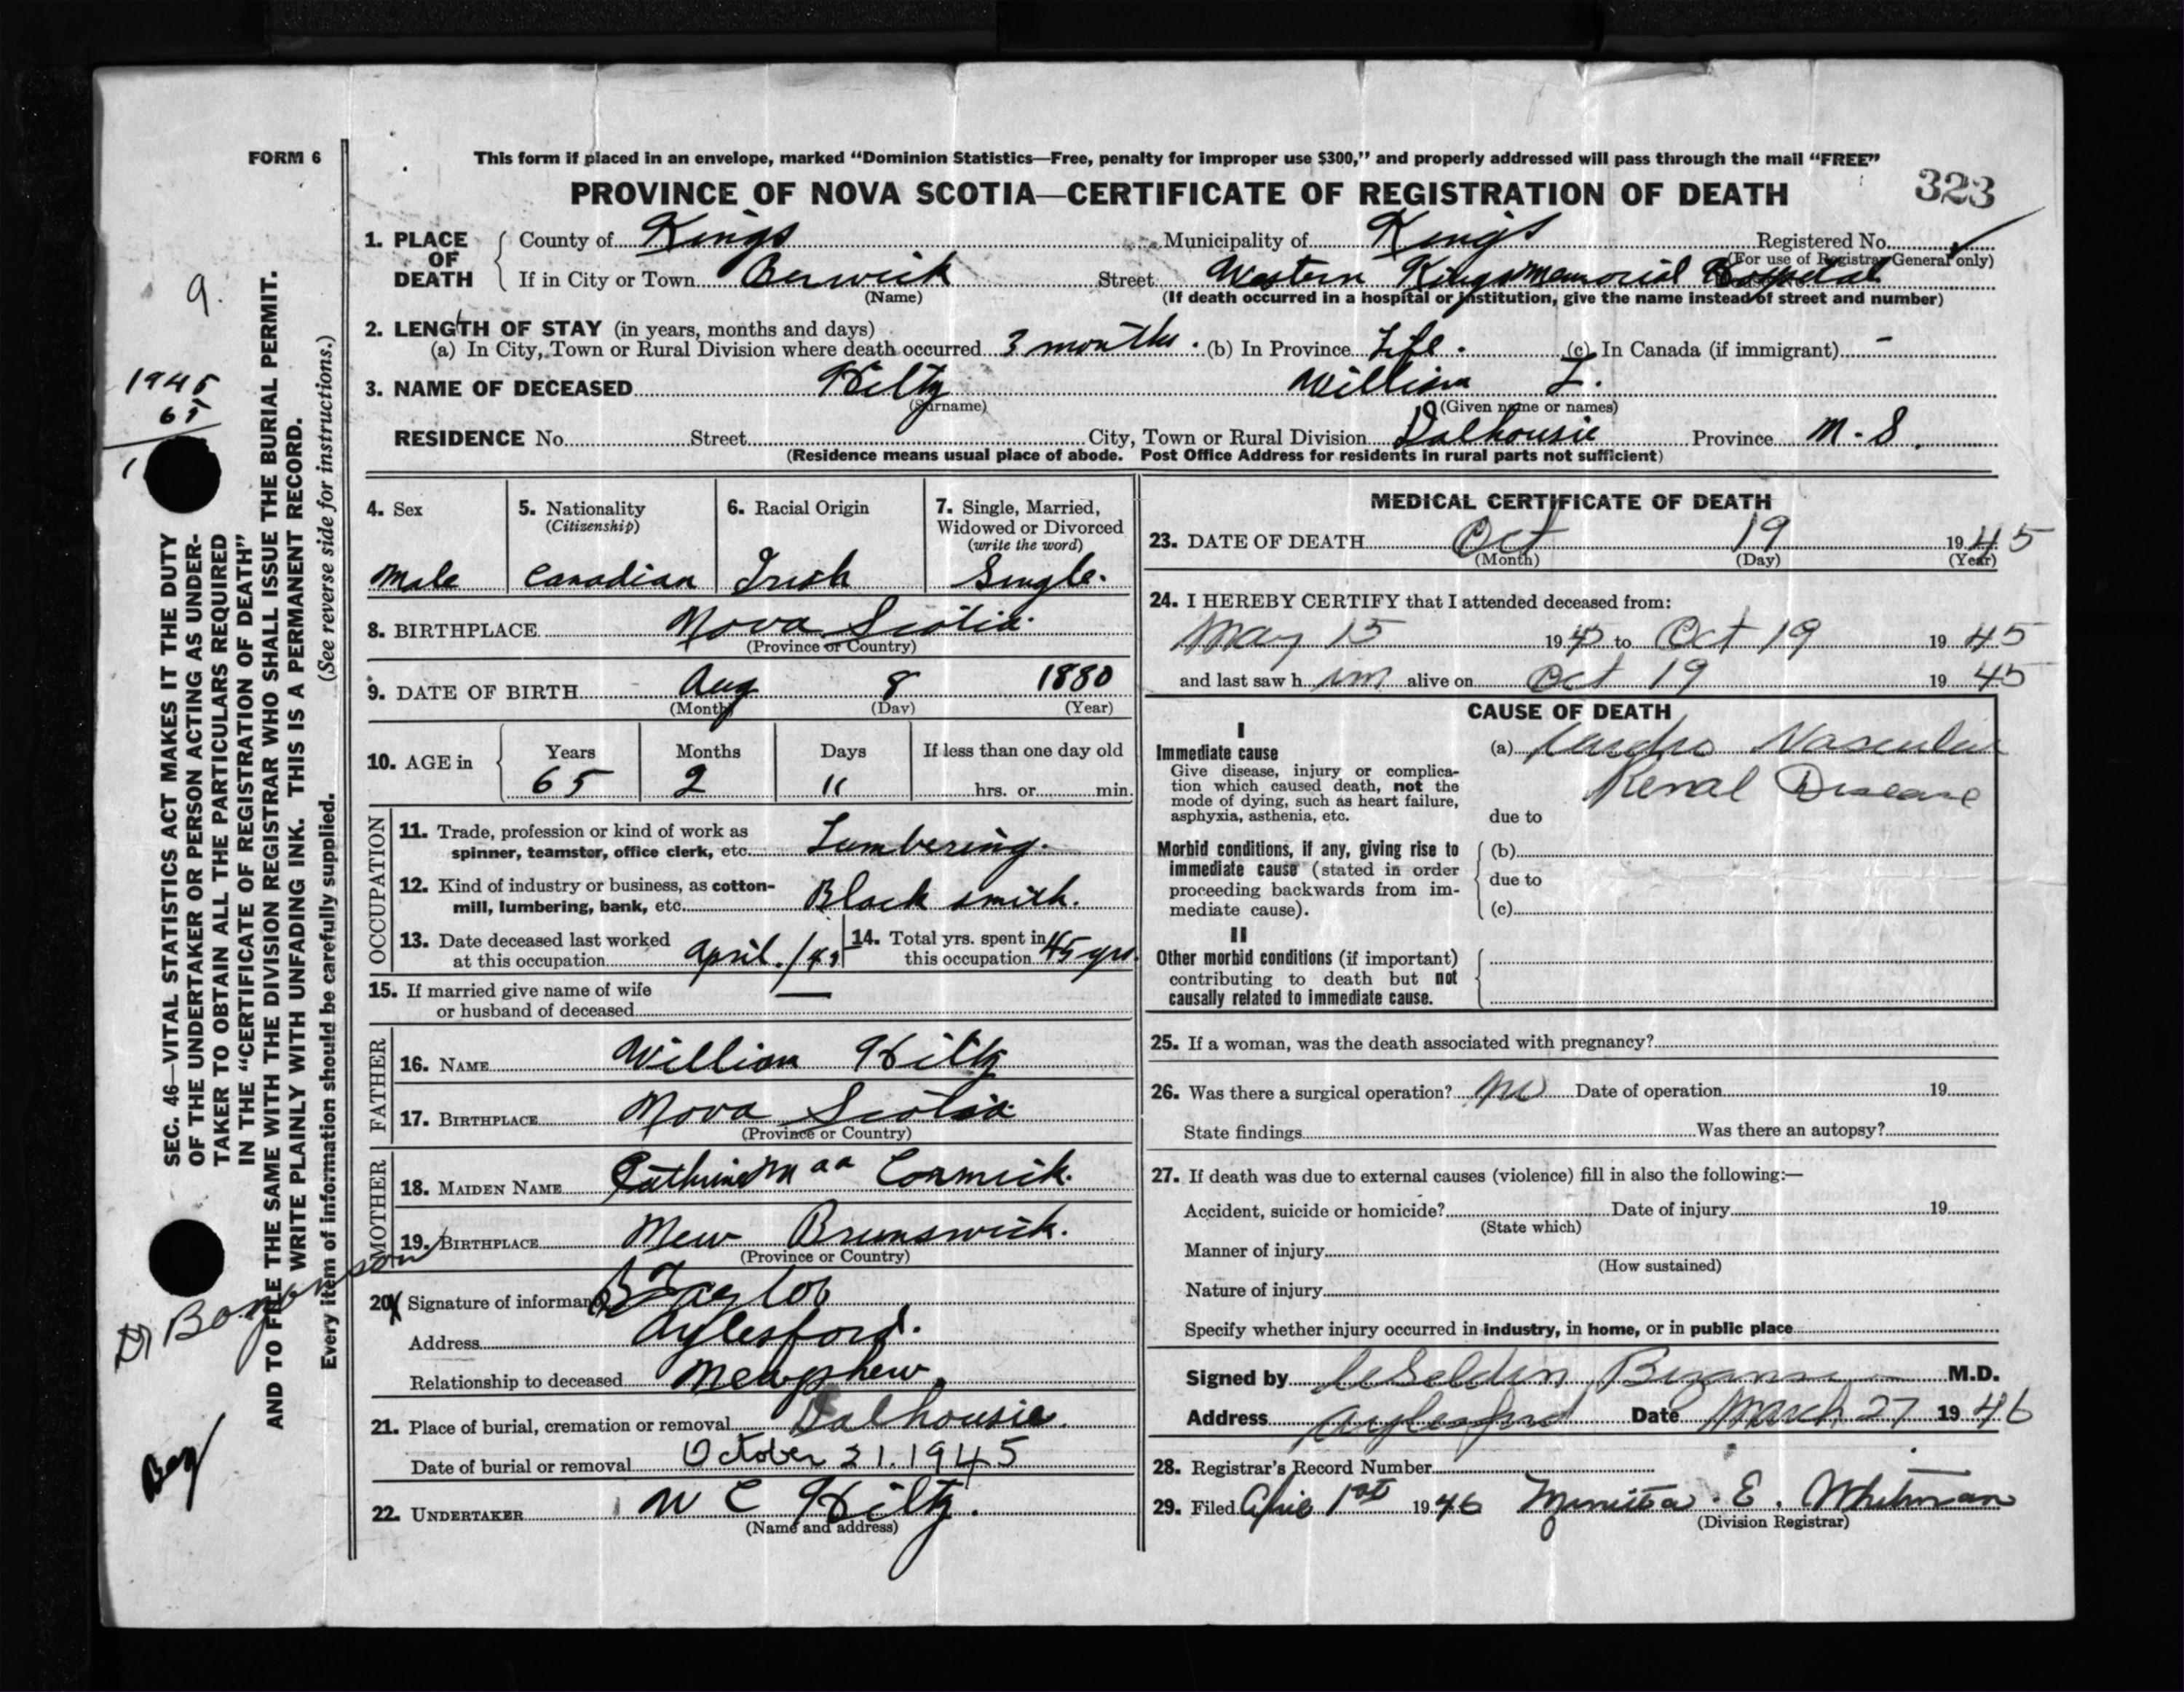 FORM 6
This form if placed in an envelope, marked “Dominion Statistics—Free, penalty for improper use $300,” and properly addressed will pass through the mail “FREE”
PROVINCE OF NOVA SCOTIA—CERTIFICATE OF REGISTRATION OF DEATH
323
1. PLACE OF DEATH
County of Kings Municipality of Kings Registered No.
(For use of Registrar General only)
If in City or Town Berwick Street Western Kings Memorial Hospital
(Name) (If death occurred in a hospital or institution, give the name instead of street and number)
2. LENGTH OF STAY (in years, months and days)
(a) In City, Town or Rural Division where death occurred 3 months. (b) In Province Life. (c) In Canada (if immigrant) -
3. NAME OF DECEASED Hiltz William L.
(Surname) (Given name or names)
RESIDENCE No. Street City, Town or Rural Division Dalhousie Province N.S.
(Residence means usual place of abode. Post Office Address for residents in rural parts not sufficient)
4. Sex
Male
5. Nationality
(Citizenship)
Canadian
6. Racial Origin
Irish
7. Single, Married,
Widowed or Divorced
(write the word)
Single.
8. BIRTHPLACE Nova Scotia.
(Province or Country)
9. DATE OF BIRTH Aug 8 1880
(Month) (Day) (Year)
10. AGE in
Years Months Days If less than one day old
65 2 11 hrs. or min.
OCCUPATION
11. Trade, profession or kind of work as
spinner, teamster, office clerk, etc. Lumbering.
12. Kind of industry or business, as cotton-
mill, lumbering, bank, etc. Black smith.
13. Date deceased last worked
at this occupation April.
14. Total yrs. spent in
this occupation 45 yrs.
15. If married give name of wife
or husband of deceased —
FATHER
16. NAME William Hiltz
17. BIRTHPLACE Nova Scotia.
(Province or Country)
MOTHER
18. MAIDEN NAME Cormick.
19. BIRTHPLACE New Brunswick.
(Province or Country)
20. Signature of informant B Taylor
Address Aylesford.
Relationship to deceased Newphew.
21. Place of burial, cremation or removal Dalhousie.
Date of burial or removal October 21. 1945
22. UNDERTAKER W C Hiltz.
(Name and address)
MEDICAL CERTIFICATE OF DEATH
23. DATE OF DEATH Oct 19 1945
(Month) (Day) (Year)
24. I HEREBY CERTIFY that I attended deceased from:
May 15 1945 to Oct 19 1945
and last saw him alive on Oct 19 1945
CAUSE OF DEATH
I
Immediate cause
Give disease, injury or complica-
tion which caused death, not the
mode of dying, such as heart failure,
asphyxia, asthenia, etc.
(a) Cardio Vascular
Renal Disease
due to
Morbid conditions, if any, giving rise to
immediate cause (stated in order
proceeding backwards from im-
mediate cause).
(b)
due to
(c)
II
Other morbid conditions (if important)
contributing to death but not
causally related to immediate cause.
25. If a woman, was the death associated with pregnancy?
26. Was there a surgical operation? no Date of operation 19
State findings Was there an autopsy?
27. If death was due to external causes (violence) fill in also the following:—
Accident, suicide or homicide? Date of injury 19
(State which)
Manner of injury
(How sustained)
Nature of injury
Specify whether injury occurred in industry, in home, or in public place
Signed by M.D.
Address Aylesford Date March 27 1946
28. Registrar's Record Number
29. Filed 1st 1946 E. Whitman
(Division Registrar)
SEC. 46—VITAL STATISTICS ACT MAKES IT THE DUTY
OF THE UNDERTAKER OR PERSON ACTING AS UNDER-
TAKER TO OBTAIN ALL THE PARTICULARS REQUIRED
IN THE “CERTIFICATE OF REGISTRATION OF DEATH”
AND TO FILE THE SAME WITH THE DIVISION REGISTRAR WHO SHALL ISSUE THE BURIAL PERMIT.
WRITE PLAINLY WITH UNFADING INK. THIS IS A PERMANENT RECORD.
Every item of information should be carefully supplied. (See reverse side for instructions.)
9.
1945
65